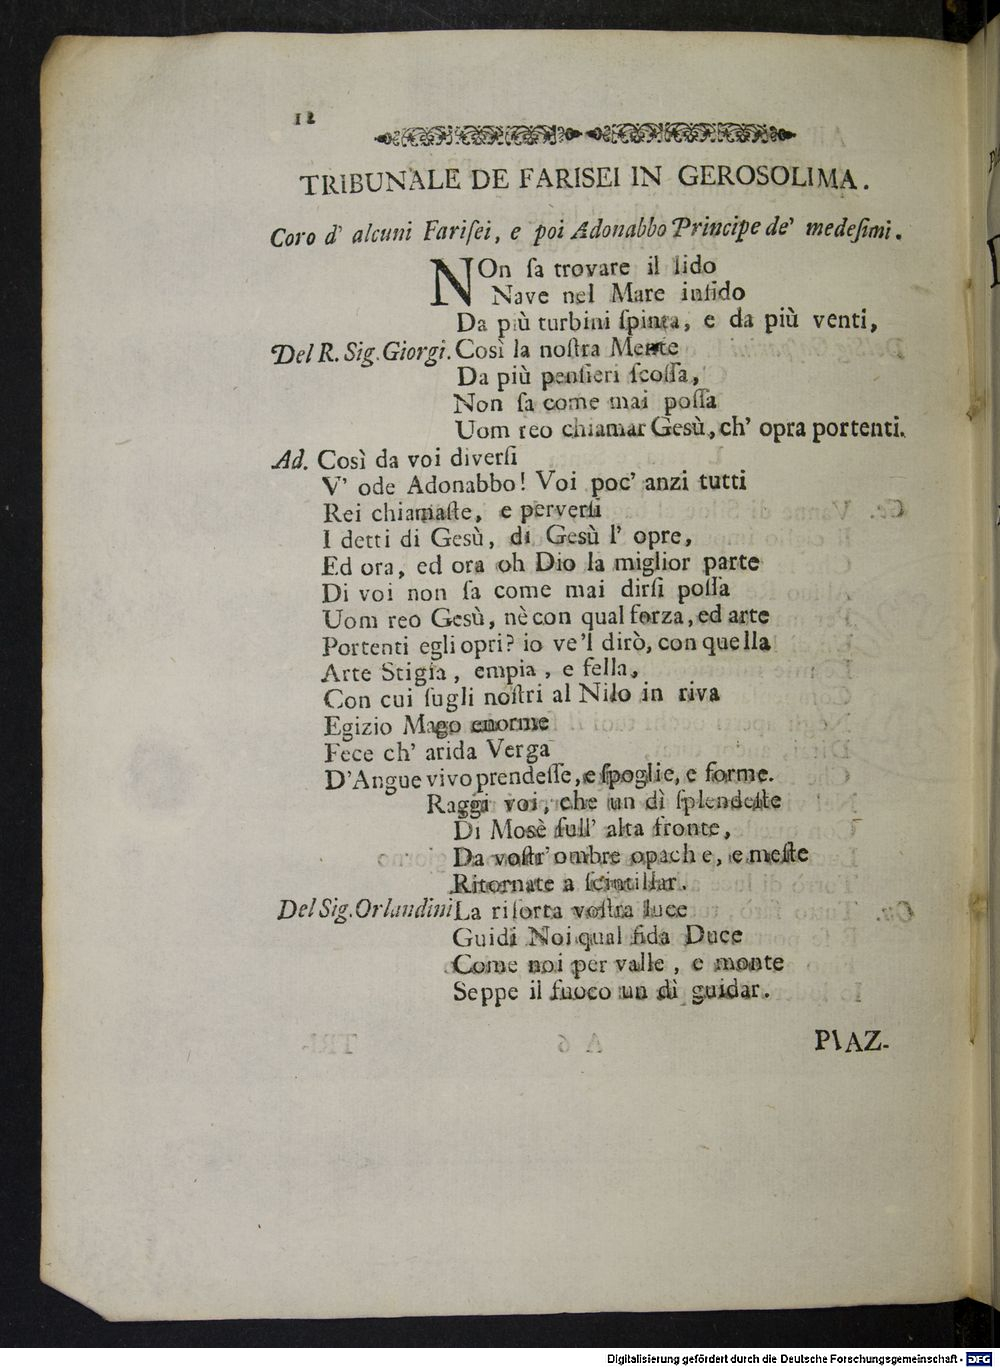 12
TRIBUNALE DE FARISEI IN GEROSOLIMA.
Coro d' alcuni Fariſei, e poi Adonabbo Principe de' medeſimi.
NOn ſa trovare il lido
Nave nel Mare infido
Da più turbini ſpinta, e da più venti,
Del R. Sig. Giorgi. Così la noſtra Mente
Da più penſieri ſcoſſa,
Non ſa come mai poſſa
Uom reo chiamar Gesù, ch' opra portenti.
Ad. Così da voi diverſi
V' ode Adonabbo! Voi poc' anzi tutti
Rei chiamaſte, e perverſi
I detti di Gesù, di Gesù l' opre,
Ed ora, ed ora oh Dio la miglior parte
Di voi non ſa come mai dirſi poſſa
Uom reo Gesù, nè con qual forza, ed arte
Portenti egli opri? io ve'l dirò, con quella
Arte Stigia, empia, e fella,
Con cui ſugli noſtri al Nilo in riva
Egizio Mago enorme
Fece ch' arida Verga
D'Angue vivo prendeſſe, e ſpoglie, e forme.
Raggi voi, che un dì ſplendeſte
Di Mosè full' alta fronte,
Da voſtr' ombre opache, e meſte
Ritornate a ſcintillar.
Del Sig. Orlandini La riſorta voſtra luce
Guidi Noi qual fida Duce
Come noi per valle, e monte
Seppe il fuoco un dì guidar.
PIAZ-
Digitalisierung gefördert durch die Deutsche Forschungsgemeinschaft - DFG